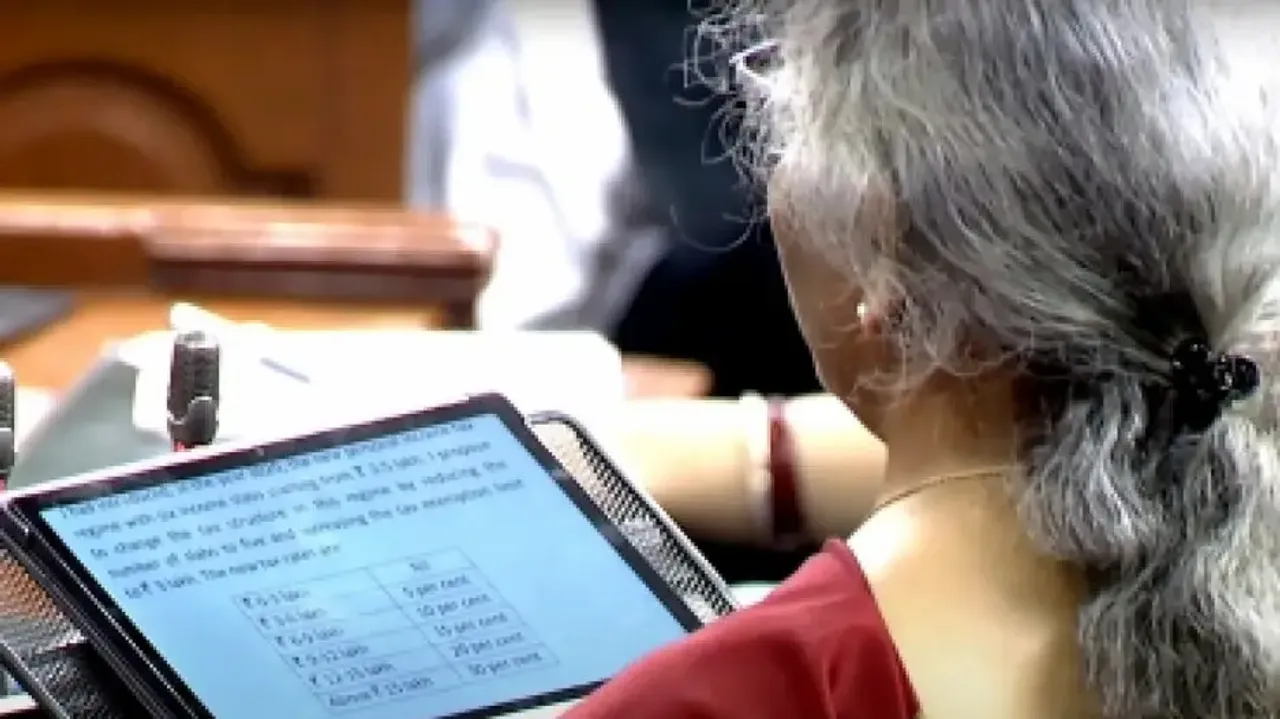 I had introduced, in the year 2020, the new personal income tax
regime with six income slabs starting from ₹ 2.5 lakh. I propose
to change the tax structure in this regime by reducing the
number of slabs to five and increasing the tax exemption limit
to ₹ 3 lakh. The new tax rates are:
₹ 0-3 lakh Nil
₹ 3-6 lakh 5 per cent
₹ 6-9 lakh 10 per cent
₹ 9-12 lakh 15 per cent
₹ 12-15 lakh 20 per cent
Above ₹ 15 lakh 30 per cent